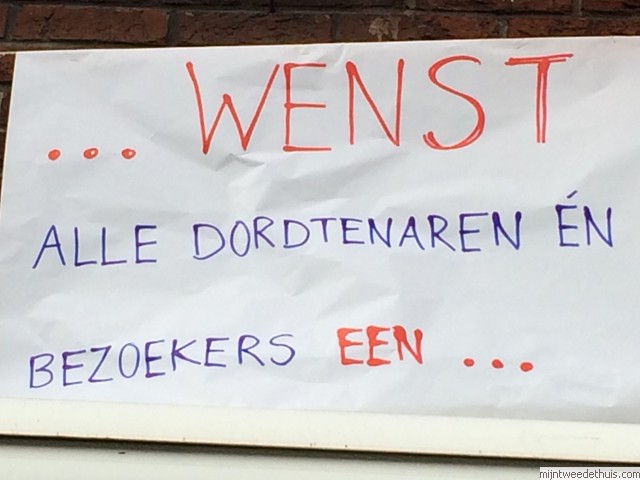 ... WENST
ALLE DORDTENAREN ÉN
BEZOEKERS EEN ...
mijntweedethuis.com